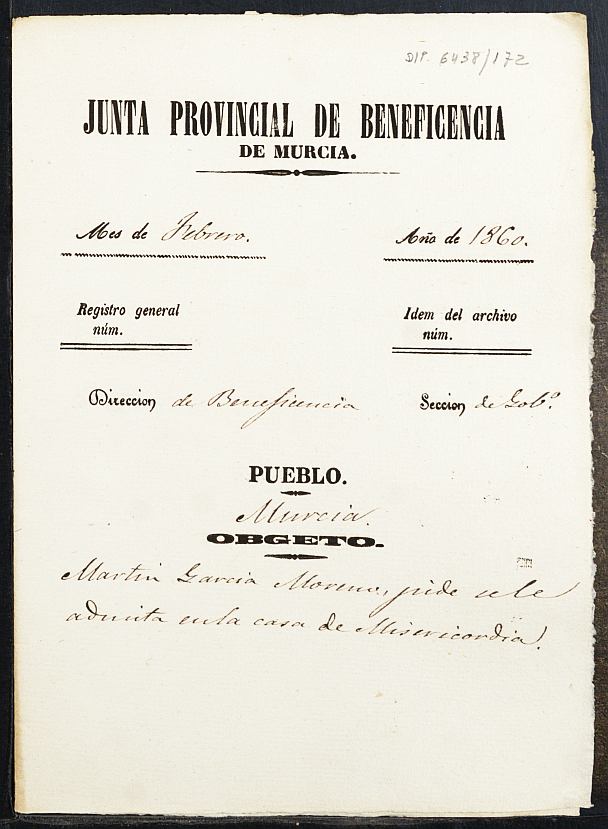 DIP. 6438/172
JUNTA PROVINCIAL DE BENEFICENCIA
DE MURCIA.
Mes de Febrero. Año de 1860.
Registro general núm. Idem del archivo núm.
Direccion de Beneficencia Seccion de Gobº.
PUEBLO.
Murcia.
OBGETO.
Martin Garcia Moreno, pide se le
admita en la casa de Misericordia.